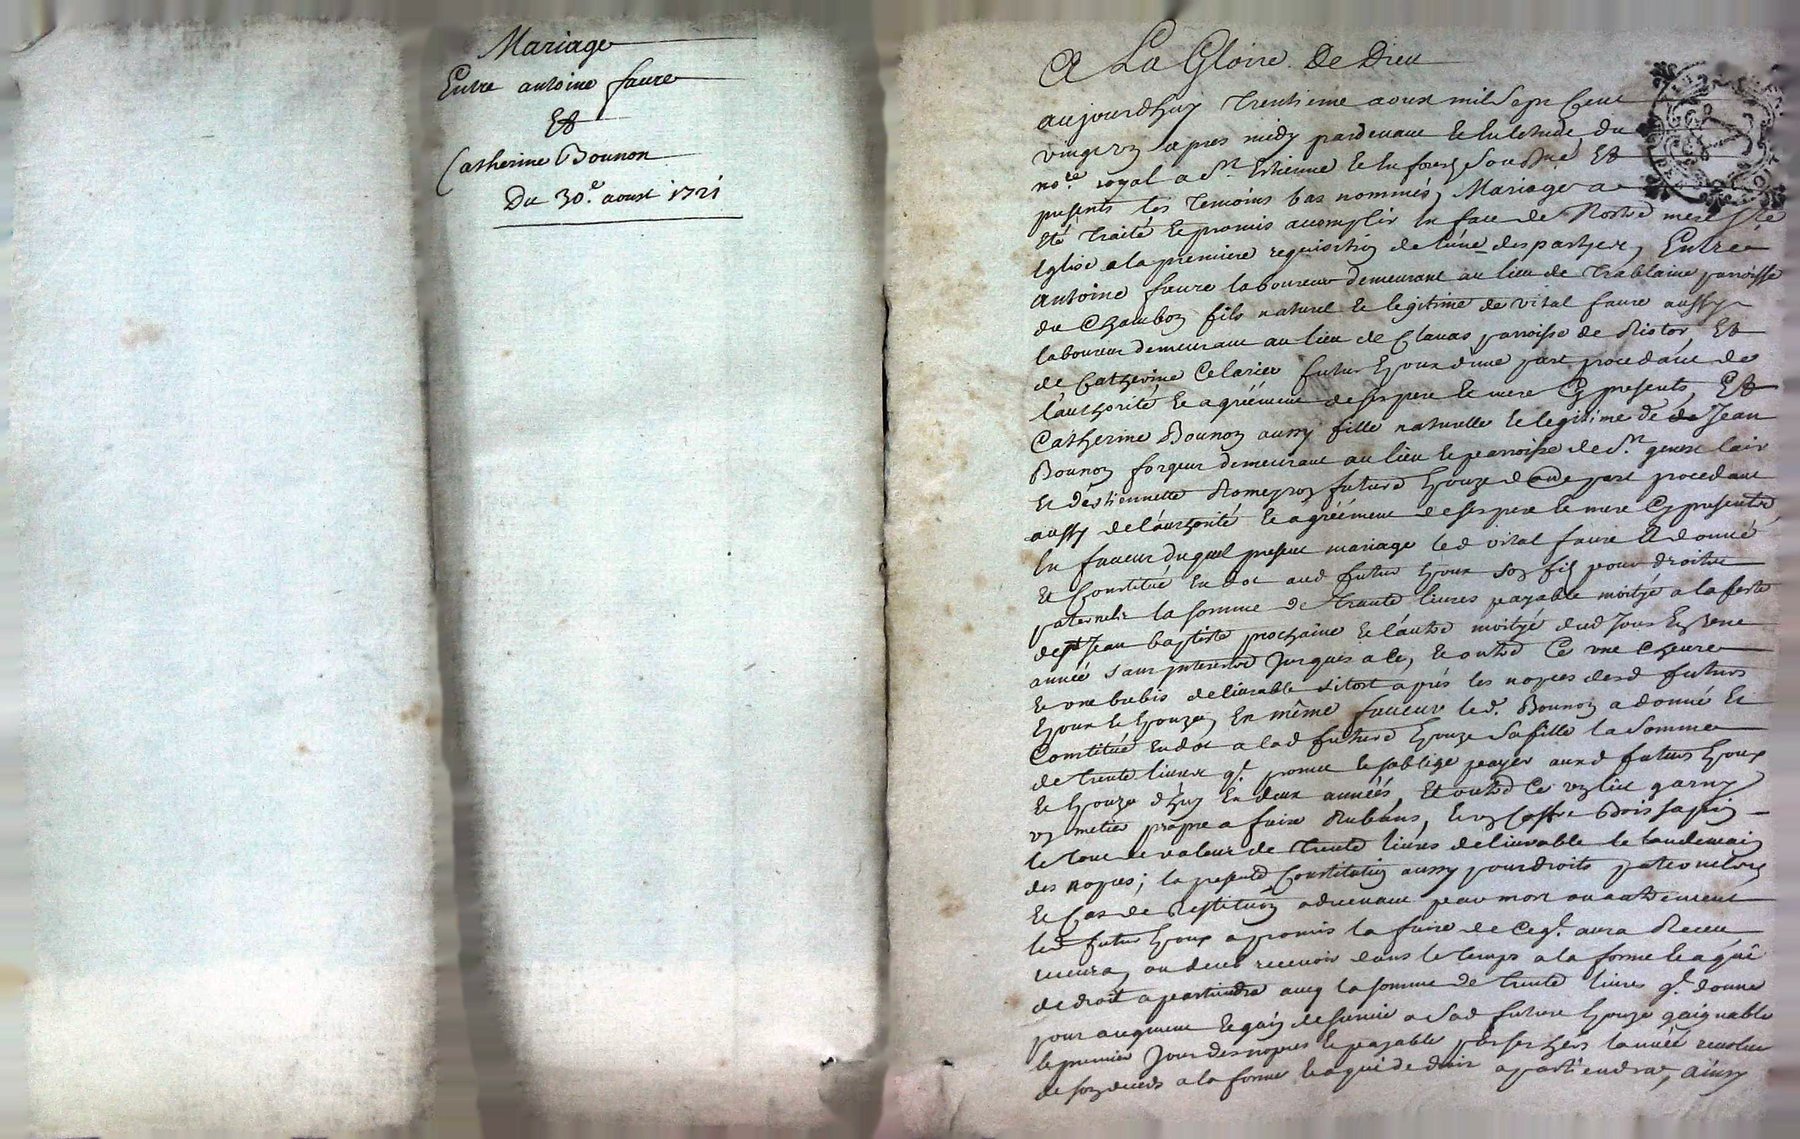 Mariage
Entre antoine faure
Et
Catherine Bounon
Du 30.e aoust 1721
A La Gloire De Dieu
aujourdhuy Trentieme aoust mil Sept Cent
vingt un apres midy pardevant Et En Letude du
no.re royal a St Estienne En foretz Soubné Et
presents les Temoins bas nommés, Mariage a
Eté Traité Et promis acomplir En face de Nostre mere Ste
Eglise a la premiere requisition de L'une des partyes, Entre
Antoine faure laboureur demeurant au lieu de Trablaine parroisse
du Chambon fils naturel Et legitime de vital faure aussy
laboureur demeurant au lieu de Clavas parroisse de Riotor, Et
de Catherine Celarier futur Epoux d'une part procedant de
l'authorité Et agréement de ses pere Et mere Cy presents, Et
Catherine Bounon aussy fille naturelle Et legitime de de Jean
Bounon forgeur demeurant au lieu Et parroisse de St genest lair
Et d'estiennette Romeyron future Epouze d'autre part procedant
aussy de l'authorité Et agréement de ses pere Et mere Cy presents,
En faveur duquel present mariage led vital faure A donné
Et Constitué En dot aud futur Epoux son fils pour droits
paternels la somme de Trante livres payable moityé a la feste
de st Jean baptiste prochaine Et l'autre moityé dud Jour En une
année sans interest Jusques a Ce, Et outre Ce une Chevre
Et une brebis delivrable sitost aprés les nopces desd futurs
Epoux Et Epouze, En même faveur led. Bounon a donné Et
Constitué En dot a lad future Epouze sa fille la somme
de Trente livres q.l promet Et s'oblige payer auxd futurs Epoux
Et Epouze d'huy En deux années, Et outre Ce un lit garny
un metier propre a faire Rubans, Et un Coffre Bois sapin
le tout de valeur de Trente livres delivrable le landemain
des nopces; la presente Constitution aussy pour droits paternels
Et Cas de restitution advenant par mort ou autrement
led futur Epoux a promis la faire de Ce q.l aura Receu
recevra, ou deub recevoir dans le temps a la forme Et a qui
de droit apartiendra avec la somme de Trente livres q.l donne
pour augment Et gain de survie a Sad future Epouze gaignable
le premier Jour des nopces Et payable par ses hers l'année revolue
de son deceds a la forme Et a qui de droit apartiendra, ainsy